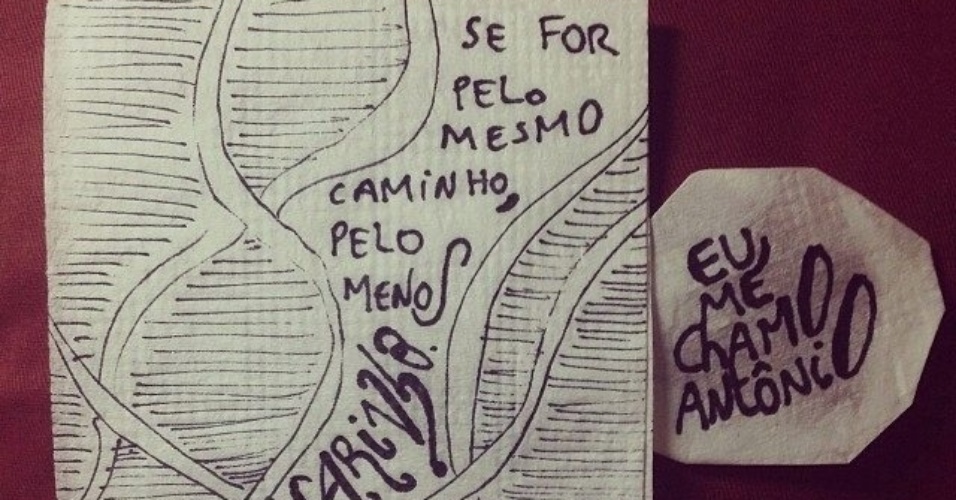 SE FOR
PELO
MESMO
CAMINHO,
PELO
MENOS
CARINHO.
EU
ME
CHAMO
ANTÔNIO